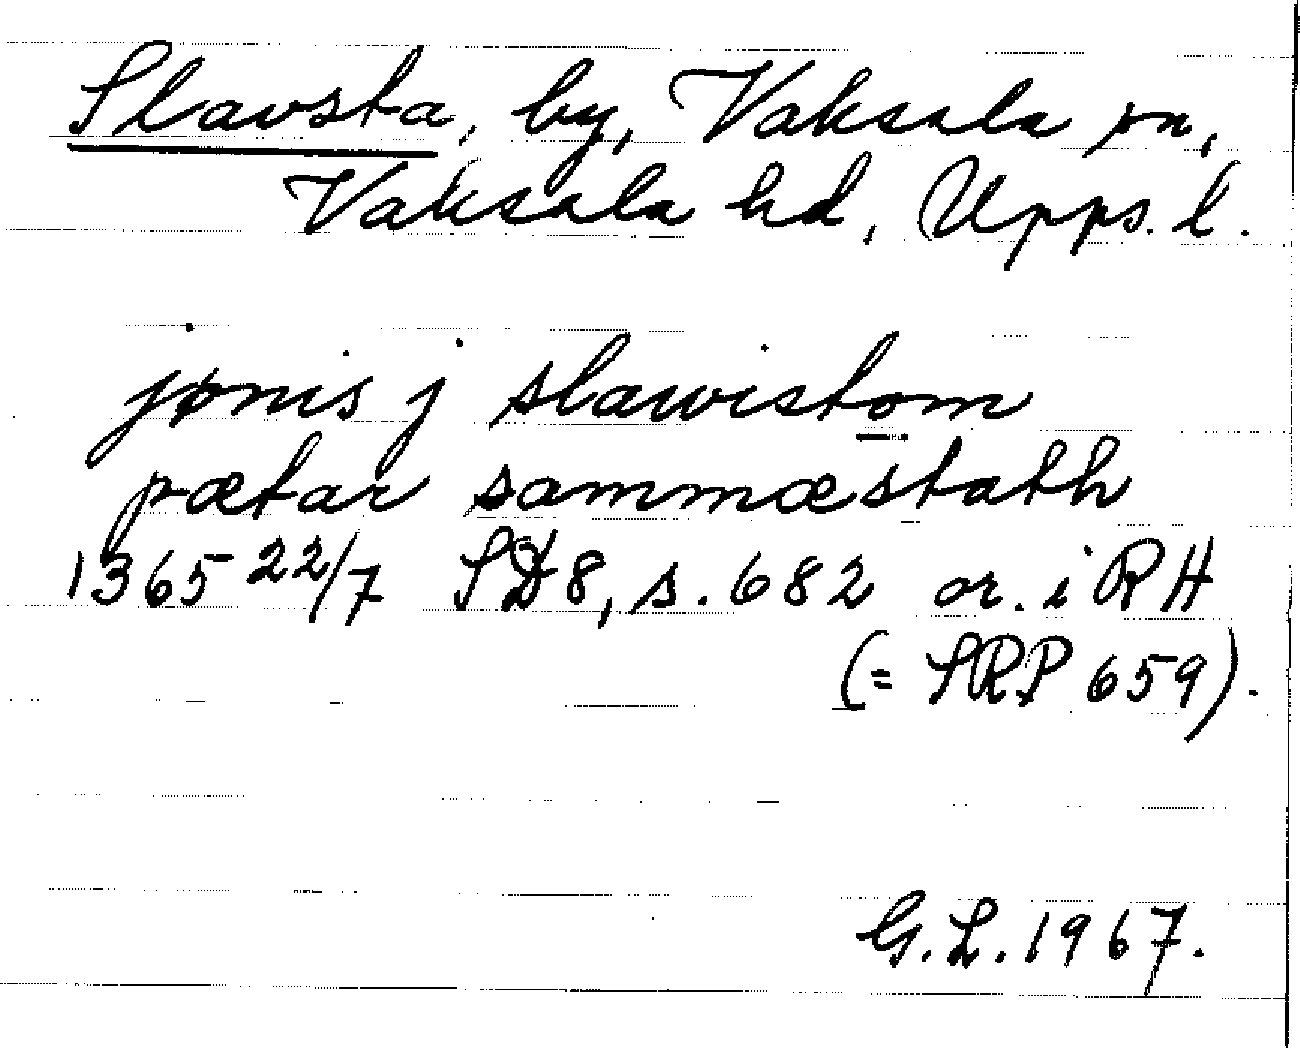 Slavsta, by, Vaksala sn,
Vaksala hd, Upps. l.
jønis j slawistom
pætar sammæstath
1365 22/7 SD8, s. 682 or. i RH
(= SRP 659).
G.L. 1967.